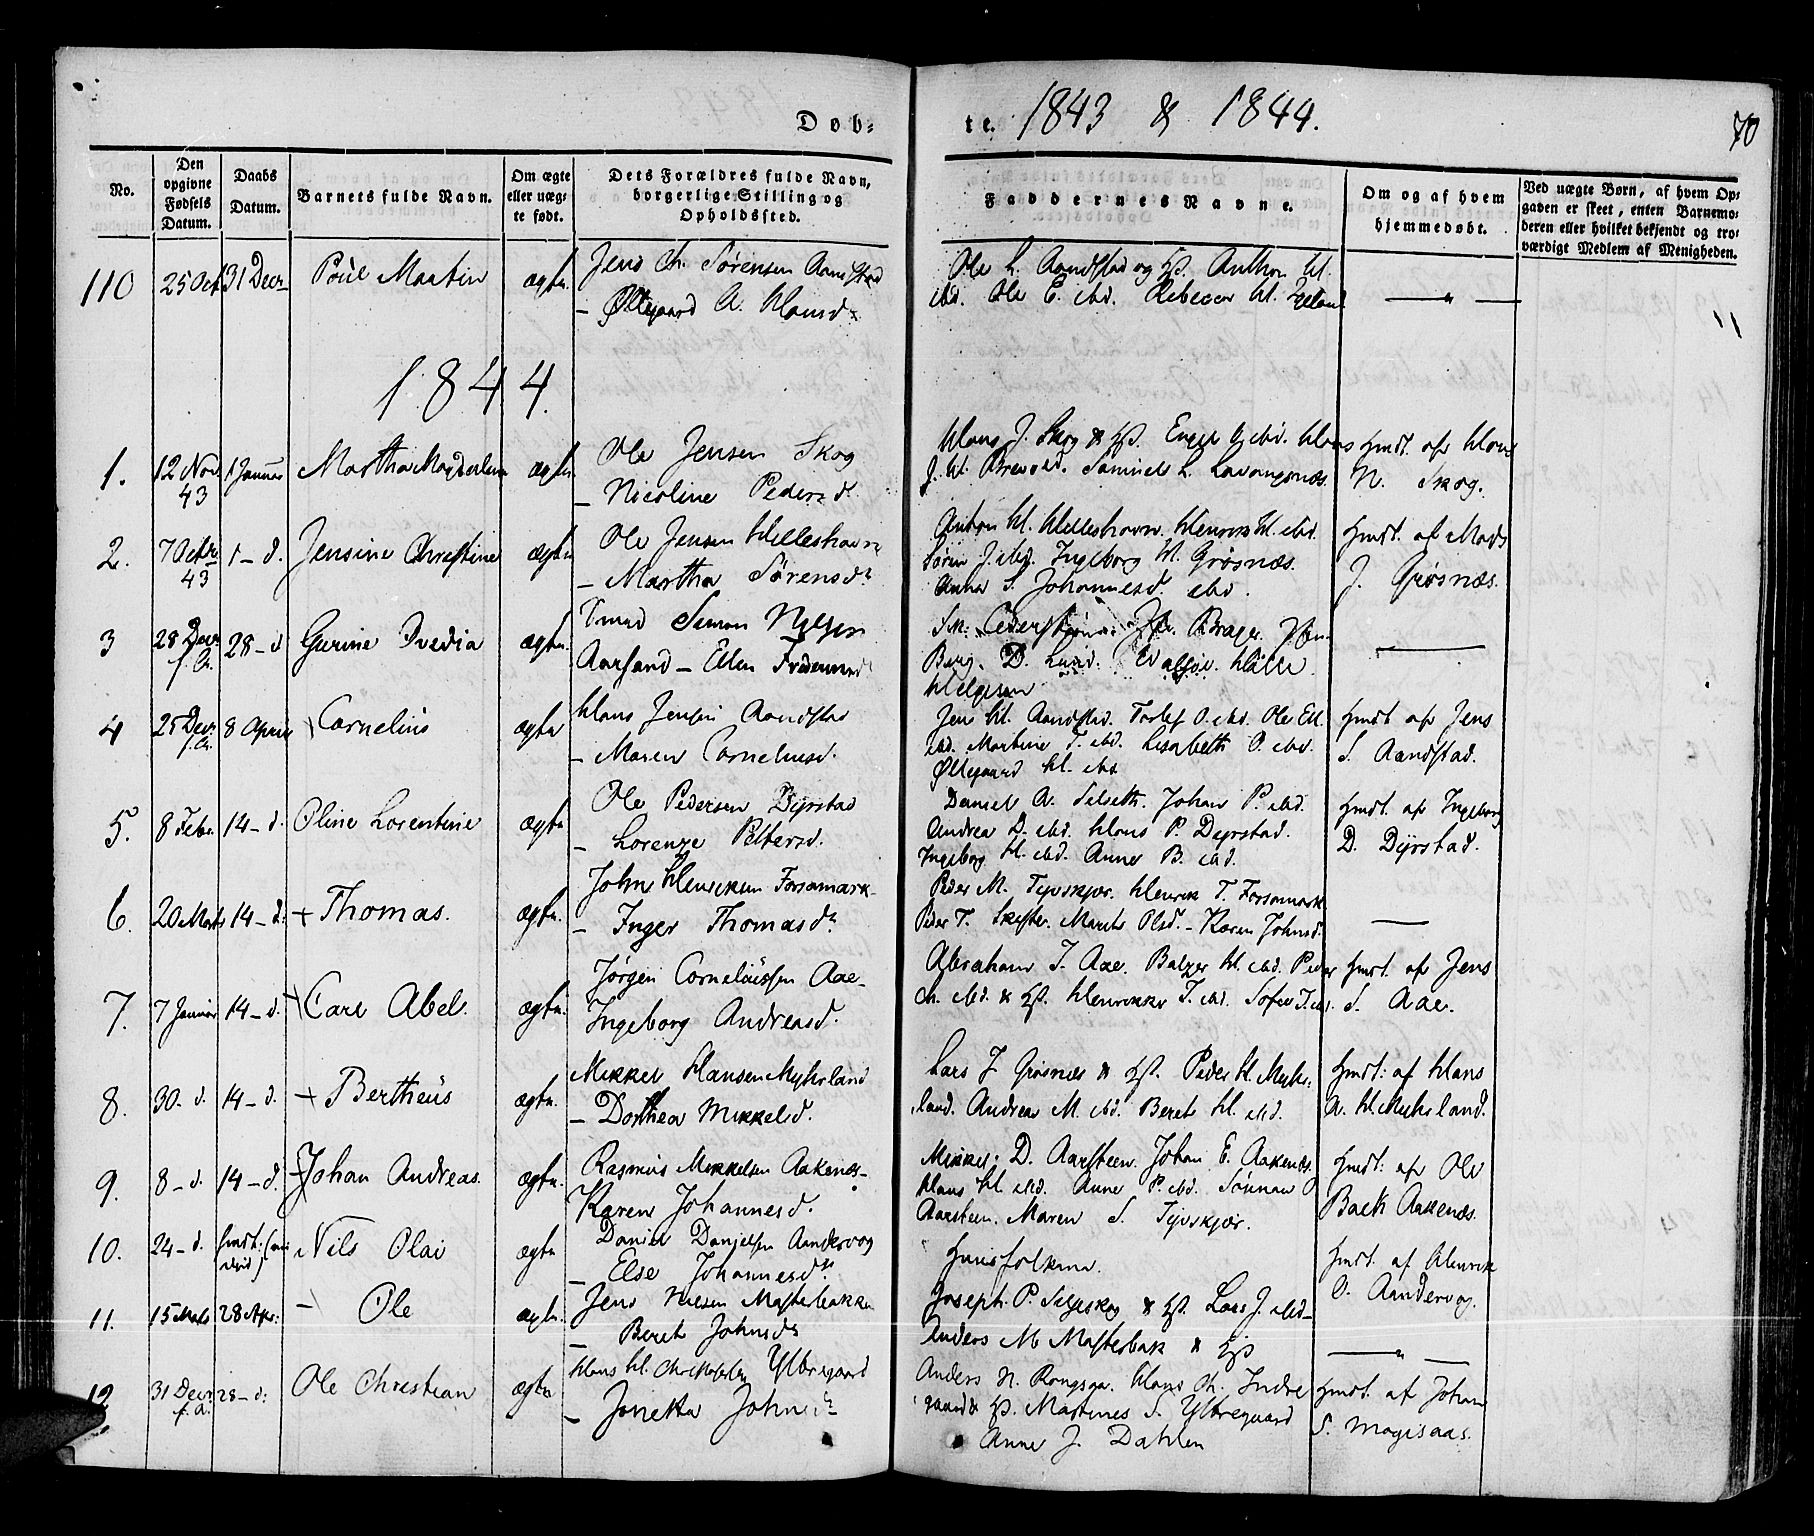 Døb-
te. 1843 & 1844.
70
No.
Den opgivne Fødsels Datum.
Daabs Datum.
Barnets fulde Navn.
Om ægte eller uægte født.
Dets Forældres fulde Navn, borgerlige Stilling og Opholdssted.
Faddernes Navne.
Om og af hvem hjemmedøbt.
Ved uægte Børn, af hvem Opgaven er skeet, enten Barnemoderen eller hvilket bekjendt og troværdigt Medlem af Menigheden.
110 25 Oct 31 Decr Poul Martin ægte. Jens Chr. Sørensen Aandstad
- Øllegaard A. Hansd.
Ole L. Aandstad og Hst. Anthon H.
ibd. Ole E. ibd. Rebecca H.
1844.
1. 12 Nov. 43 1 Januar Martha Magdalena ægte. Ole Jensen Skog
- Nicoline Pedersd.
Hans J. Skog & Hst. Engel J. ibd. Hans
J. H. Breivold. Samuel L. Lavangsnæs.
Hmdt. af Hans
N. Skog.
2. 7 Octbr 43 1 - d. Jensine Christine ægte Ole Jensen Helleshavn
- Martha Sørensdr
Anton H. Helleshavn. Henrik H. ibd.
Søren J. ibd. Ingeborg H. Grøsnæs.
Anna S. Johannesd. ibd.
Hmdt. af Mads
J. Grøsnæs.
3 28 Decr f. A. 28 - d Gurine Ovedia ægte. Simon Nilsen
Aarsand - Ellen
Berg. D. Lund.
Helgesen
4 25 Decr f. A. 8 April Cornelius ægte Hans Jensen Aandstad
- Maren Corneliusd.
Jens H. Aandstad. Torlef O. ibd. Ole Ell.
ibd. Martine T. ibd. Lisabeth O. ibd.
Øllegaard H. ibd
Hmdt. af Jens
S. Aandstad.
5. 8 Febr. 14 - d. Oline Lorentine ægte Ole Pedersen Dyrstad
- Lorenze Pettersd.
Daniel A. Selseth. Johan P. ibd.
Andrea D. ibd. Hans P. Dyrstad.
Ingeborg H. ibd. Anne B. ibd.
Hmdt. af Ingeborg
D. Dyrstad.
6. 20 Marts 14 - d. Thomas. ægte. John Henriksen Forsamark
- Inger Thomasdr
Peder M. Tjuvskjær. Henrik T. Forsamark
Peder T. Marith Olsd. - Karen Johnsd.
7. 7 Januar 14 - d. Carl Abel. ægte. Jørgen Corneliussen Aae -
Ingeborg Andreasd.
Abraham I. Aae. Balzer H. ibd. Peder
Ch. ibd. & Hst. Henrikke I. ibd. Sofie I. ibd.
Hmdt. af Jens
S. Aae.
8. 30 - d. 14 - d. Bertheus ægte. Mikkel Hansen Myhrland
- Dorthea Mikkelsd.
Lars J Grøsnæs & Hst. Peder H. Myhr-
land. Andrea M. ibd. Beret H. ibd.
Hmdt: af Hans
A. H. Myhrland.
9. 8 - d. 14 - d. Johan Andreas. ægte. Rasmus Mikkelsen Aakenes -
Karen Johannesd.
Mikkel D. Aarsteen. Johan E. Aakenæs.
Hans H. ibd. Anne P. ibd.
Aarsteen. Maren S. Tjuvskjær.
Hmdt: af Ole
Back Aakenæs.
10. 24 - d. Hmdt: Nils Olai ægte Daniel Danielsen Aandervog
- Else Johannesdr
Huusfolkene.
Hmdt. af Henrik
O. Aandervog.
11. 15 Marts 28 Apr: Ole ægte. Jens Nilsen Masterbakken
- Beret Johnsdr
Joseph P. Selseskog & Hst. Lars J. ibd -
Anders M Masterbak & Hst
12 31 Decr f. A. 28 - d. Ole Christian ægte Hans H. Christophersen Yttregaard
- Jonetta Johnsdr
Anders N. Rongsaa. Hans Ch. Indre
gaard & Hst. Martines S. Yttregaard
Anne J. Dahlen
Hmdt. af Johan
S. Mogisaas.